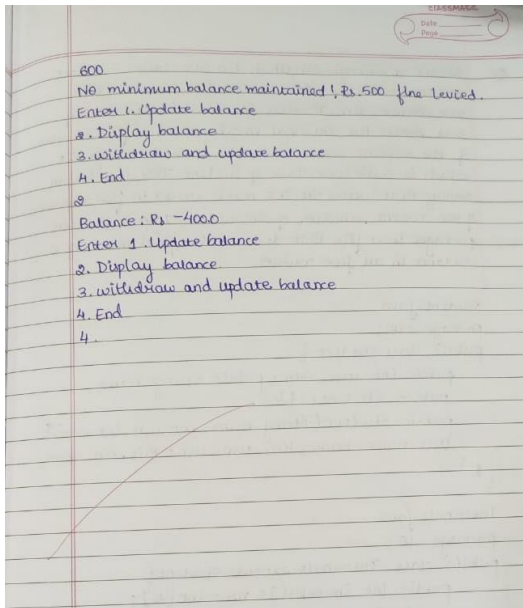 CLASSMATE
Date
Page
600
No minimum balance maintained!, Rs.500 fine levied.
Enter 1. Update balance
2. Display balance
3. withdraw and update balance
4. End
2
Balance: Rs -400.0
Enter 1. Update balance
2. Display balance
3. withdraw and update balance
4. End
4.